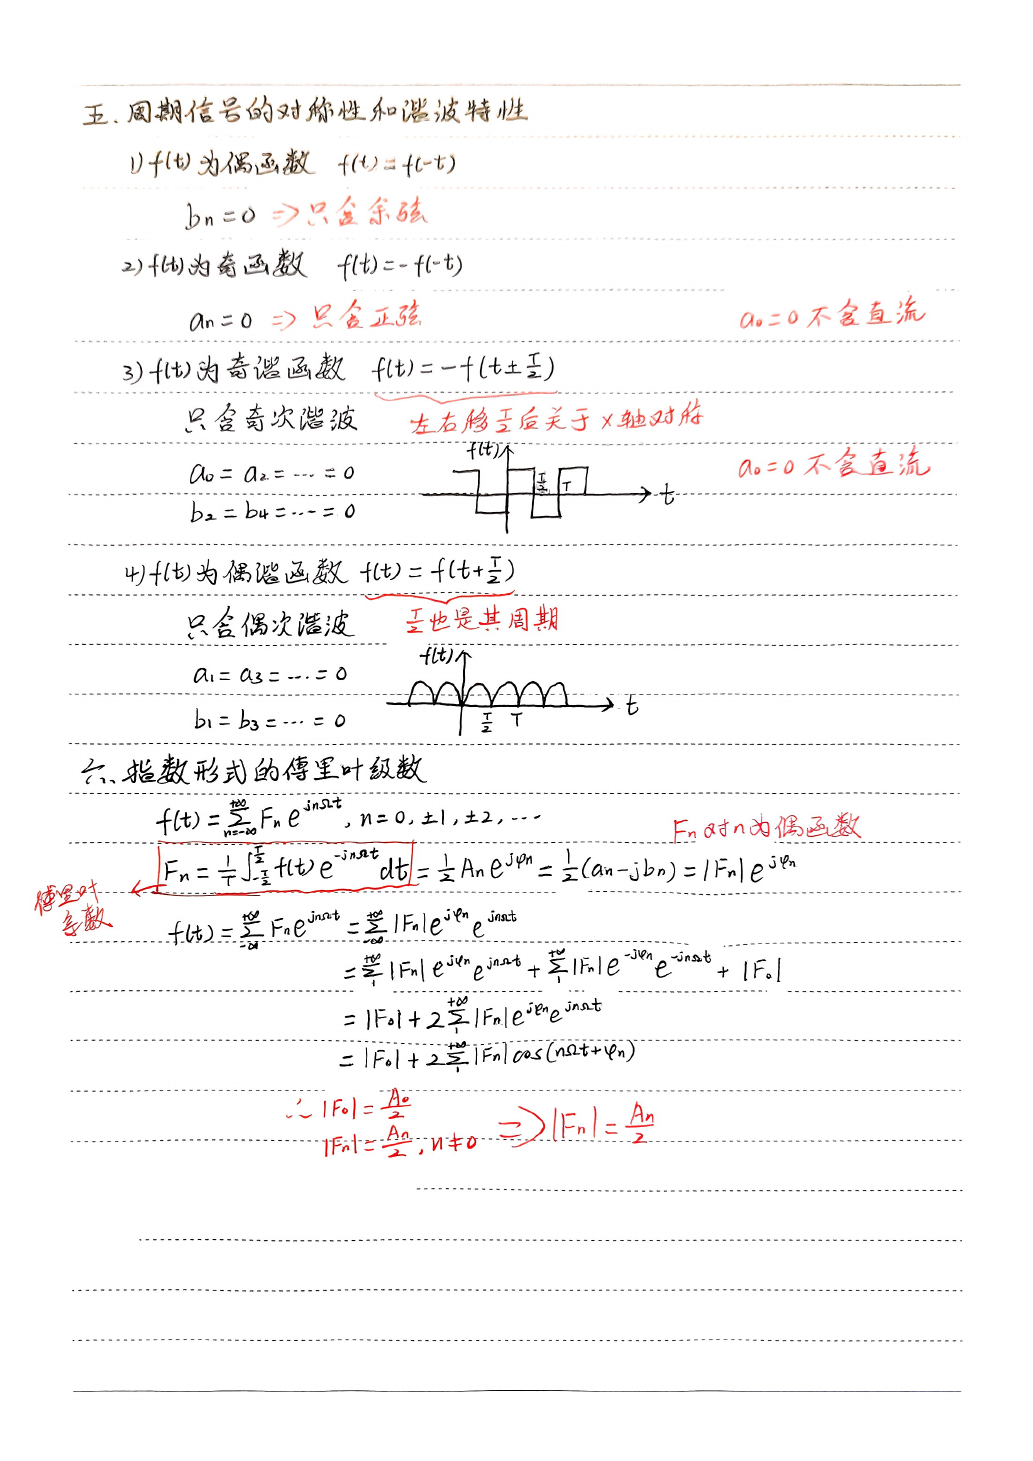 五. 周期信号的对称性和谐波特性
1) f(t) 为偶函数 f(t) = f(-t)
bn = 0 => 只含余弦
2) f(t)为奇函数 f(t) = -f(-t)
an = 0 => 只含正弦 a₀ = 0 不含直流
3) f(t) 为奇谐函数 f(t) = -f(t ± T/2)
只含奇次谐波 左右移 T/2 后关于 x 轴对称
a₀ = a₂ = ⋯ = 0 f(t) T/2 T t a₀ = 0 不含直流
b₂ = b₄ = ⋯ = 0
4) f(t) 为偶谐函数 f(t) = f(t + T/2)
只含偶次谐波 T/2 也是其周期
a₁ = a₃ = ⋯ = 0 f(t) T/2 T t
b₁ = b₃ = ⋯ = 0
六. 指数形式的傅里叶级数
f(t) = Σ_{n=-∞}^{+∞} Fn e^{jnΩt}, n = 0, ±1, ±2, ⋯ Fn 对 n 为偶函数
Fn = 1/T ∫_{-T/2}^{T/2} f(t) e^{-jnΩt} dt = 1/2 An e^{jφn} = 1/2 (an - jbn) = |Fn| e^{jφn}
傅里叶
系数
f(t) = Σ_{-∞}^{+∞} Fn e^{jnΩt} = Σ_{-∞}^{+∞} |Fn| e^{jφn} e^{jnΩt}
= Σ_{1}^{+∞} |Fn| e^{jφn} e^{jnΩt} + Σ_{1}^{+∞} |Fn| e^{-jφn} e^{-jnΩt} + |F₀|
= |F₀| + 2 Σ_{1}^{+∞} |Fn| e^{jφn} e^{jnΩt}
= |F₀| + 2 Σ_{1}^{+∞} |Fn| cos(nΩt + φn)
∴ |F₀| = A₀/2
|Fn| = An/2, n ≠ 0 => |Fn| = An/2